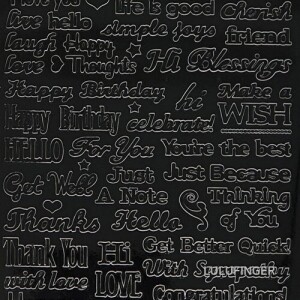 Life is good
Cherish
live hello
simple joys
friend
laugh Happy
love Thoughts
Hi Blessings
Happy Birthday
hi
Make a
WISH
Happy Birthday
celebrate!
HELLO
For You
You're the best
Get Well
Just
A Note
Just Because
Thinking
of You
Thanks
Hello
Thank You
Hi
Get Better Quick!
with love
LOVE
With Sympathy
LULUFINGER
Congratulations